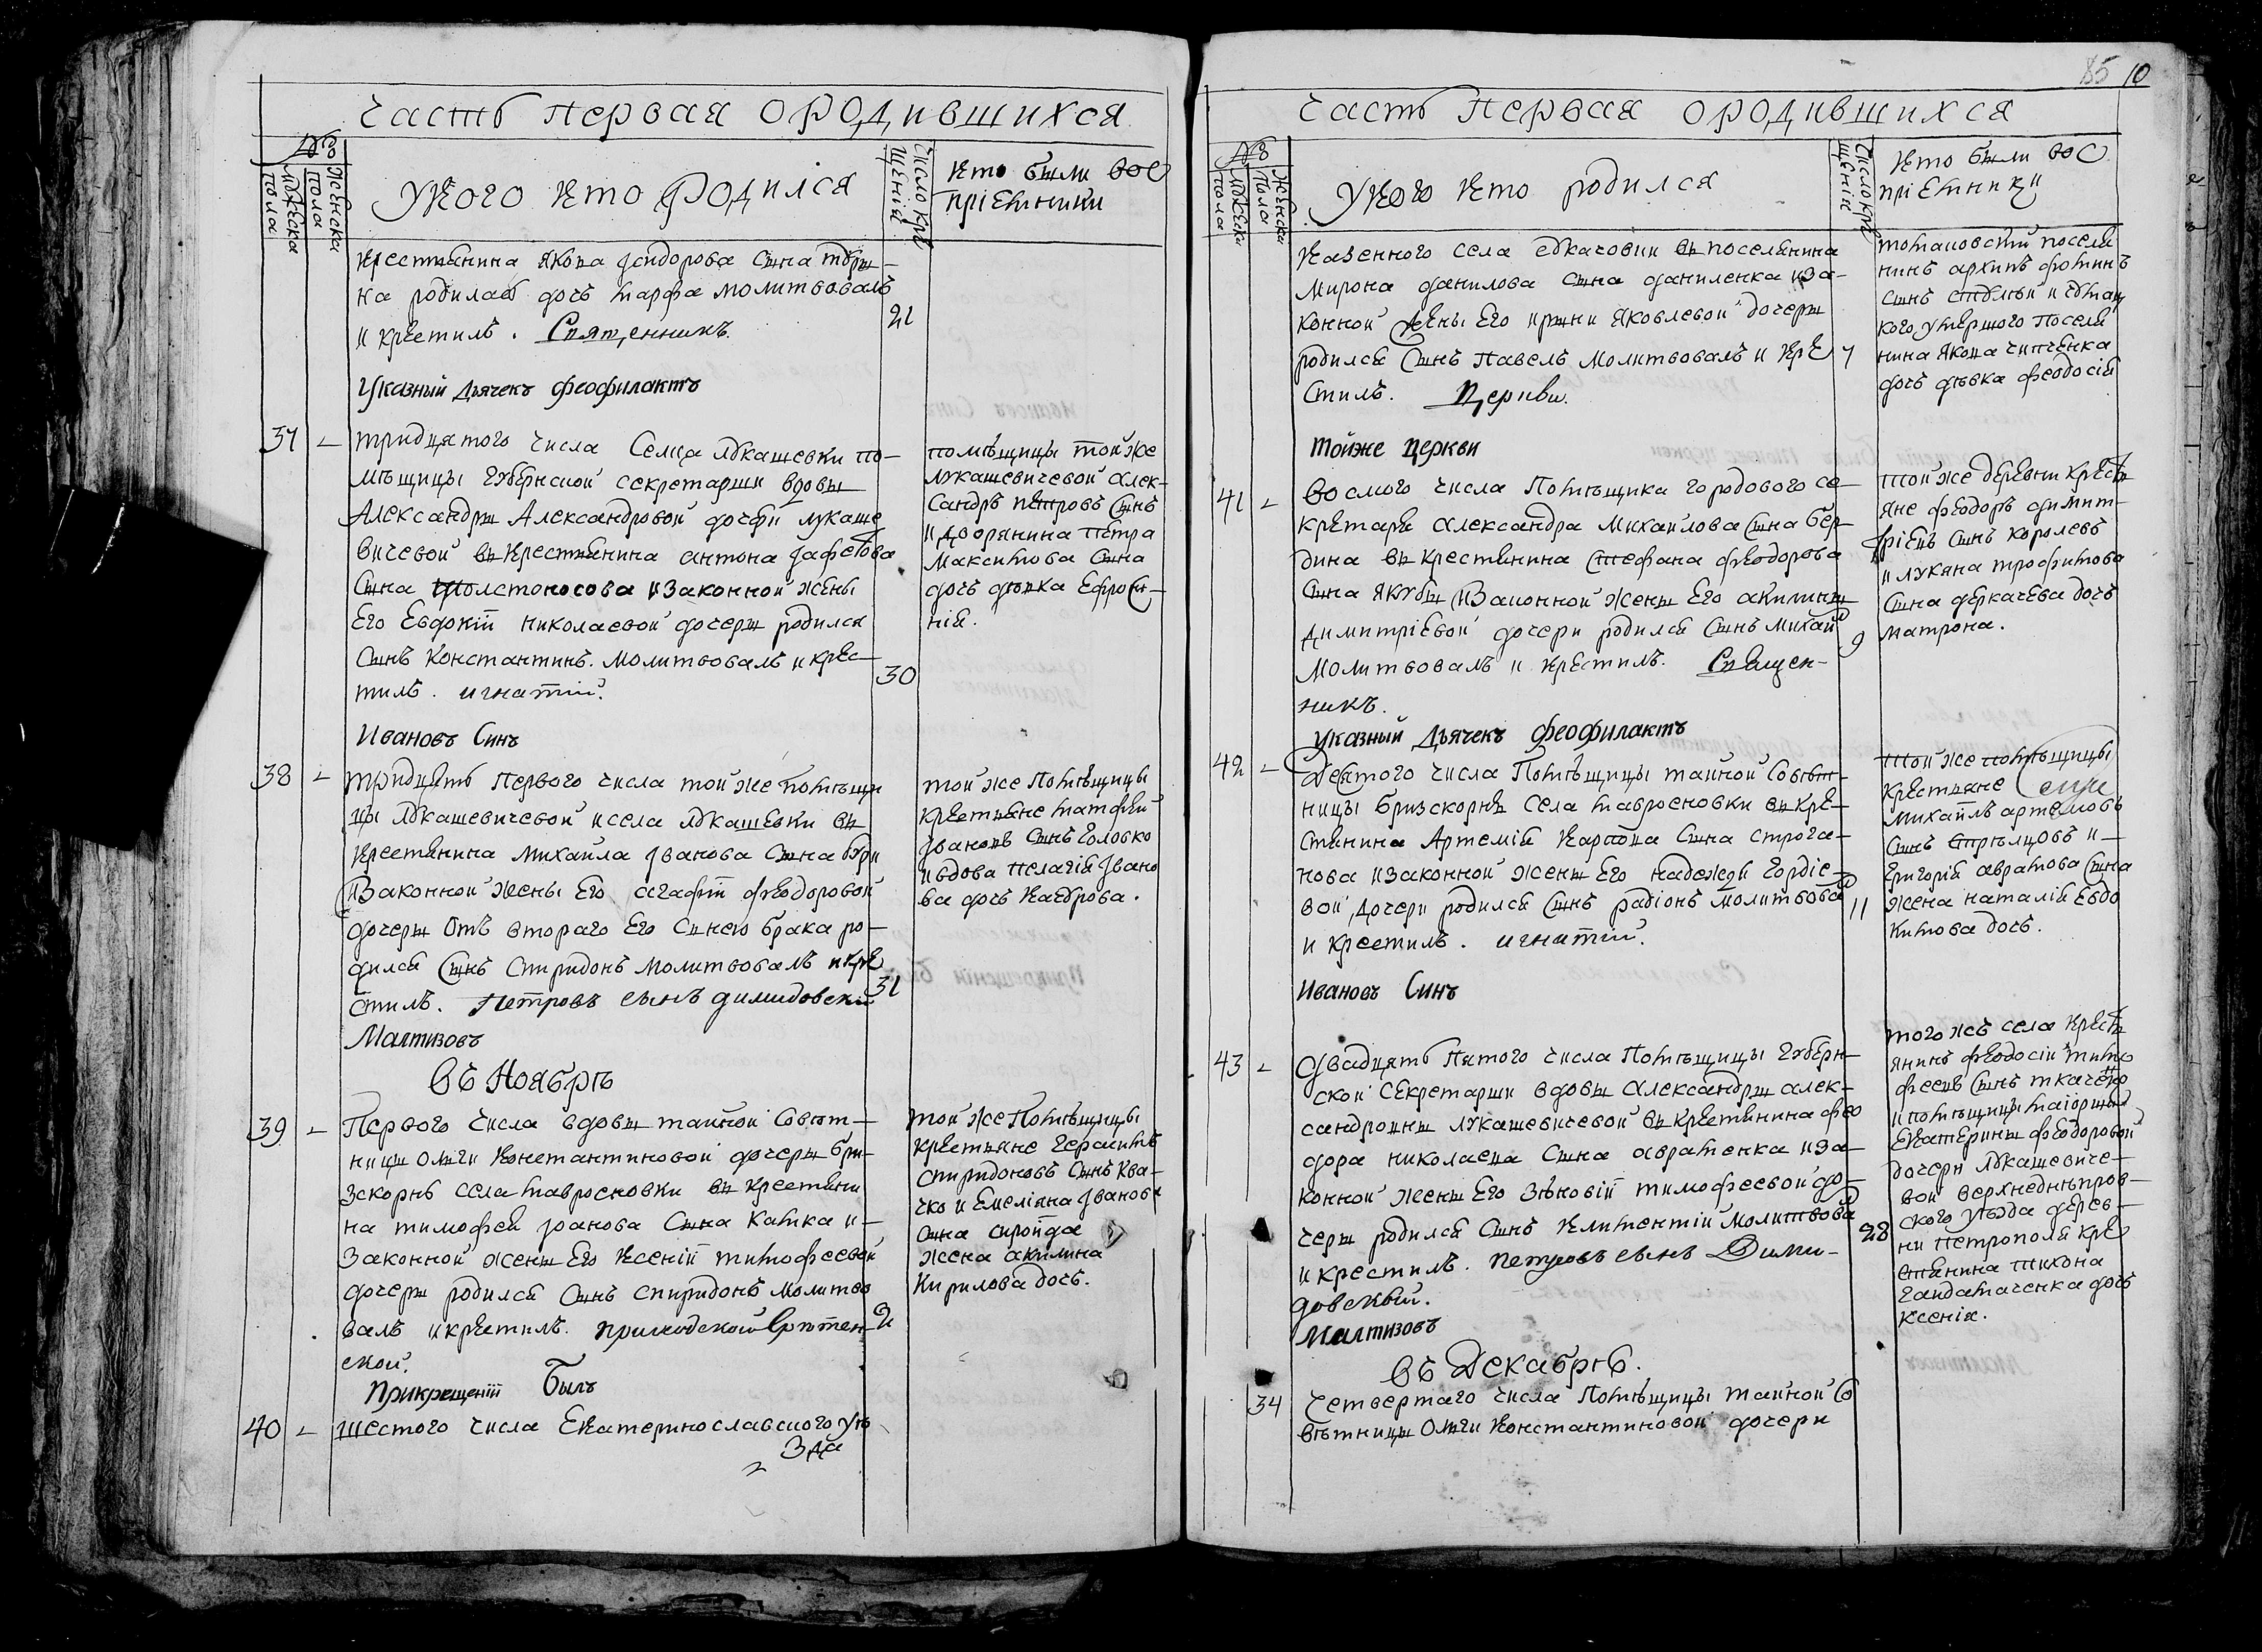 Часть первая ородившихся
№
Мужеска пола
Женска пола
Укого кто родился
Число крещенія
кто были вос
пріемники
крестьянина Якова Ісидорова сына
на родилась дочь марфа молитвовалъ
и крестилъ. Священникъ
21
Указный Дьячекъ Феофилактъ
37 –
тридцятого числа Села Лукашевки по–
мѣщицы Губернской секретарши вдовы
Александры Александровой дочери лукаше
вичевой крестьянина антона
сына толстоносова изаконной жены
Его Евдокіи николаевой дочеры родился
сынъ Константинъ. Молитвовалъ и крес–
тилъ. игнатій
30
помѣщицы той же
лукашевичевой Алек–
сандръ петровъ сынъ
и дворянина петра
Максимова сына
дочь дѣвка Ефроси–
нія.
Ивановъ Синъ
38 –
тридцять первого числа той же помѣщи
цы Лукашевичевой исела Лукашевки
крестянина михаила Іванова сына
изаконной жены Его агафіи феодоровой
дочеры отъ втораго его снею брака ро–
дился сынъ Спиридонъ молитвовалъ икре
стилъ. Петровъ сынъ димидовски
31
той же помѣщицы
крестьяне матфей
Івановъ сынъ головко
ивдова пелагія Івано
ва дочь
Малтизовъ
въ Ноябрѣ
39 –
Первого числа вдовы тайной совѣт–
ницы Олги Константиновой дочеры бри–
зскорнъ села мавросновки крестяни
на тимофея Іванова сына Катка и–
законной жены Его Ксеніи тимофеевой
дочеры родился сынъ спиридонъ молитво
валъ икрестилъ. приходской
ской.
2
той же Помѣщицы
крестьяне герасимъ
спиридоновъ сынъ ква–
чко и Емеліяна Іванова
сына
жена акилина
Кирилова дочь.
прикрещеніи Былъ
40 –
шестого числа Екатеринославского уѣ
зда
85 10
Часть первая ородившихся
№
Мужески пола
Женски пола
Укого кто родился
Число крещенія
кто были вос
пріемники
Казенного села поселянина
мирона данилова сына даниленка иза–
конной жены Его ирины Яковлевой дочеры
родился сынъ Павелъ молитвовалъ и кре
стилъ. Церкви.
7
поселя
нинъ архипъ фоминъ
сынъ
кого умершого поселя
нина Якова
дочь дѣвка феодосія
тойже церкви
41 –
восмого числа Помѣщика городового се–
кретаря александра михаилова сына бер–
дина крестянина стефана феодорова
сына Якубы изаконной жены Его акилины
димитріевой дочери родился сынъ михаи
молитвовалъ и крестилъ. Священ–
никъ.
9
той же деревни крестья
яне феодоръ димит–
ріевъ сынъ королевъ
и лукяна трофимова
сына деркачева дочь
матрона.
указный Дьячекъ Феофилактъ
42 –
Десятого числа Помѣщицы тайной совѣт–
ницы бризскорнъ села мавросновки кре–
стянина Артемія Карпова сына строга–
нова изаконной жены Его надежды гордіе–
вой, дочери родился сынъ радіонъ молитвова
и крестилъ. игнатій.
11
той же помѣщицы
крестьяне
михаилъ артемовъ
сынъ стрѣлцовъ и–
григорія аврамова сына
жена наталія Евдо
кимова дочь.
Ивановъ Синъ
43 –
двадцять пятого числа Помѣщицы губерн–
ской секретарши вдовы александры алек–
сандровны лукашевичевой крестянина фео
дора николаева сына авраменка иза–
конной жены Его зѣновіи тимофеевой до–
черы родился сынъ Климентій молитвова
и крестилъ. Петровъ сынъ Дими–
довскій.
28
того жъ села крестья
янинъ феодосій тимо
феевъ сынъ ткаченко
и помѣщицы маіорши
Екатерины феодоровой
дочери лукашевиче–
вой верхнеднѣпров–
ского уѣзда дерев–
ни петрополя кре
стянина тихона
гайдамаченка дочь
ксенія.
Малтизовъ
въ Декабрѣ.
34
четвертаго числа Помѣщицы тайной со
вѣтницы Олги Константиновой дочери